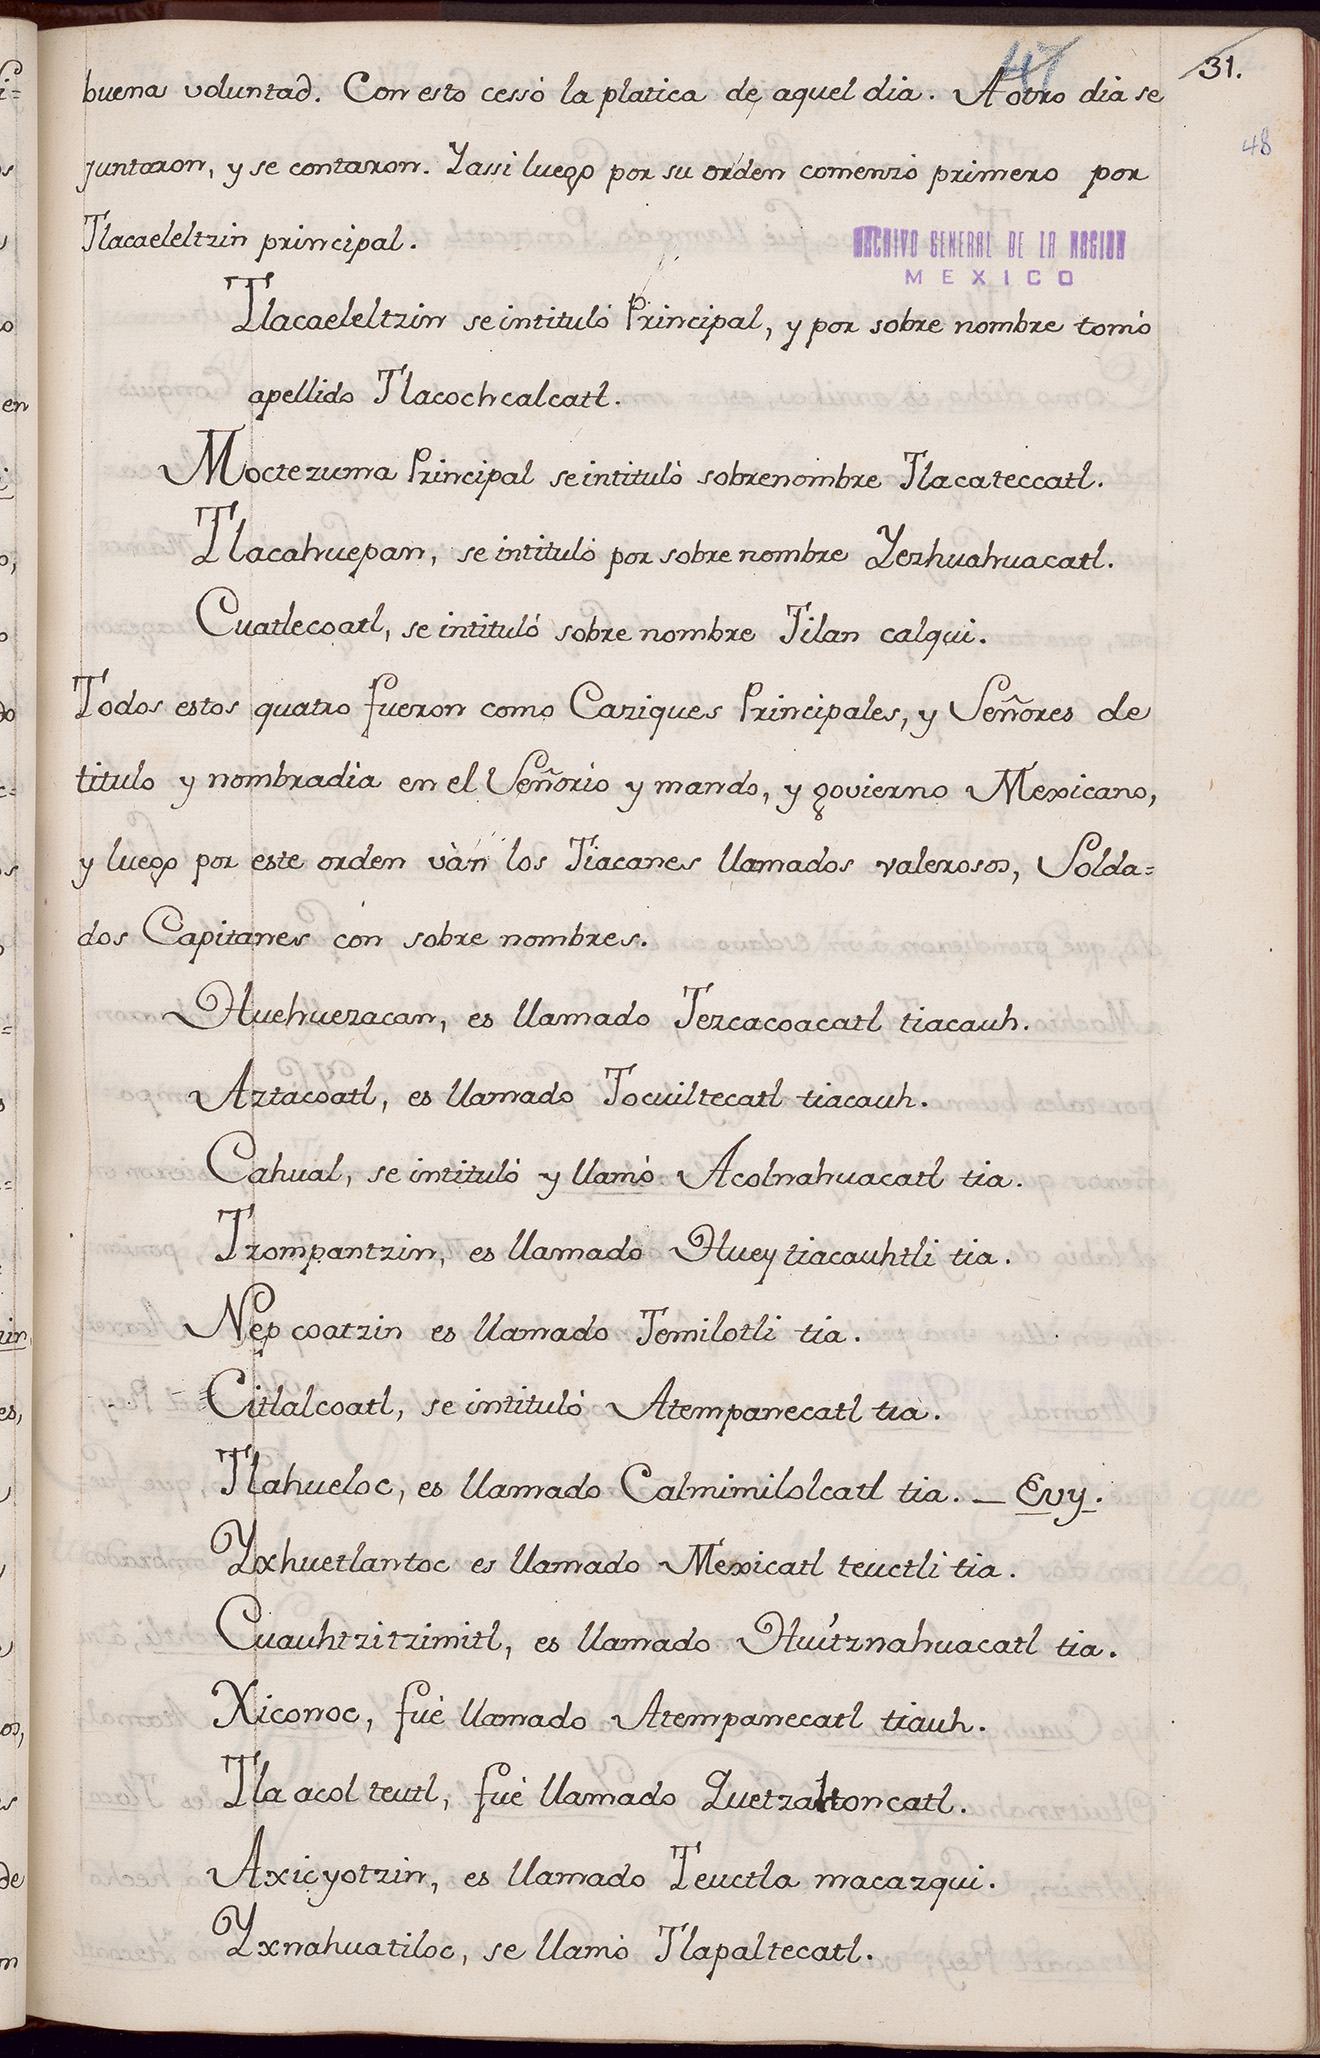 47
31.
48
buena voluntad. Con esto cessó la platica de aquel dia. A otro dia se
juntaron, y se contaron. Y assi luego por su orden comenzó primero por
Tlacaeleltzin principal.
ARCHIVO GENERAL DE LA NACION
MEXICO
Tlacaeleltzin se intituló Principal, y por sobre nombre tomó
apellido Tlacochcalcatl.
Moctezuma Principal se intituló sobrenombre Tlacateccatl.
Tlacahuepan, se intituló por sobre nombre Yezhuahuacatl.
Cuatlecoatl, se intituló sobre nombre Tilan calqui.
Todos estos quatro fueron como Caziques Principales, y Señores de
titulo y nombradia en el Señorio y mando, y govierno Mexicano,
y luego por este orden vàn los Tiacanes llamados valerosos, Solda=
dos Capitanes con sobre nombres.
Huehuezacan, es llamado Tezcacoacatl tiacauh.
Aztacoatl, es llamado Tocuiltecatl tiacauh.
Cahual, se intituló y llamó Acolnahuacatl tia.
Tzompantzin, es llamado Huey tiacauhtli tia.
Nepcoatzin es llamado Temilotli tia.
Citlalcoatl, se intituló Atempanecatl tia.
Tlahueloc, es llamado Calmimilolcatl tia. — Evy.
Yxhuetlantoc es llamado Mexicatl teuctli tia.
Cuauhtzitzimitl, es llamado Huitznahuacatl tia.
Xiconoc, fué llamado Atempanecatl tiauh.
Tlaacolteutl, fué llamado Quetzaltoncatl.
Axicyotzin, es llamado Teuctla macazqui.
Yxnahuatiloc, se llamó Tlapaltecatl.